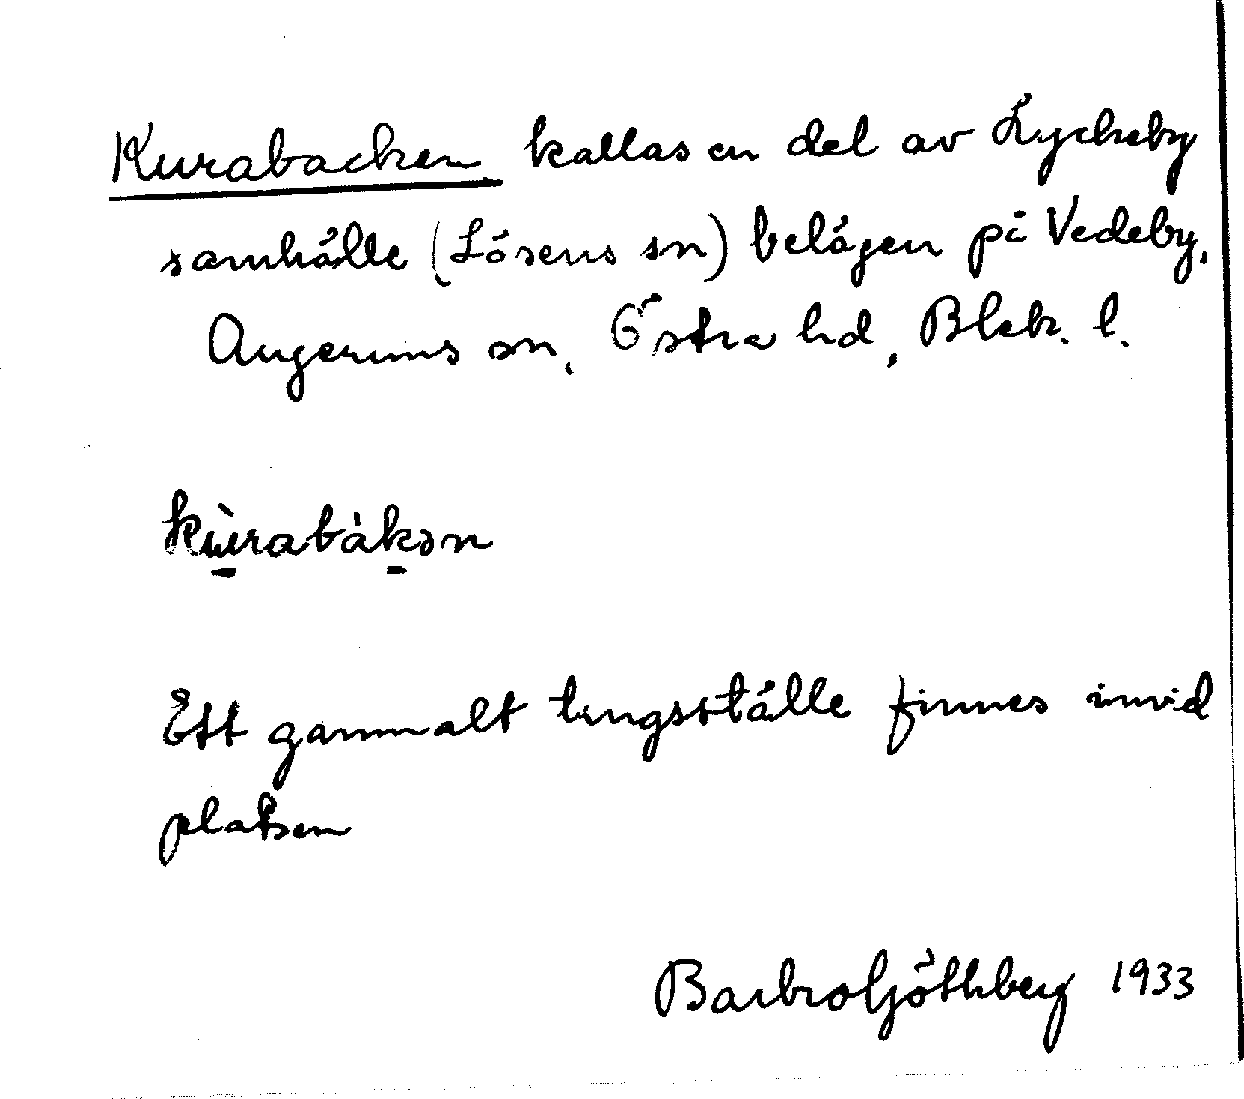 Kurabacken kallas en del av Lyckeby
samhälle (Lösens sn) belägen på Vedeby,
Augerums sn, Östra hd, Blek. l.
kùrabàkən
Ett gammalt tingsställe finnes invid
platsen
Barbro Göthberg 1933